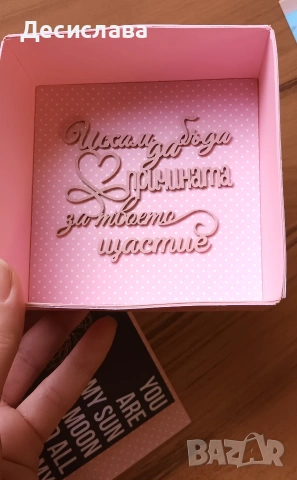 Десислава
Искам
да бъда
причината
за твоето
щастие
YOU
ARE
MY SUN
MOON
ALL
MY
BAZAR